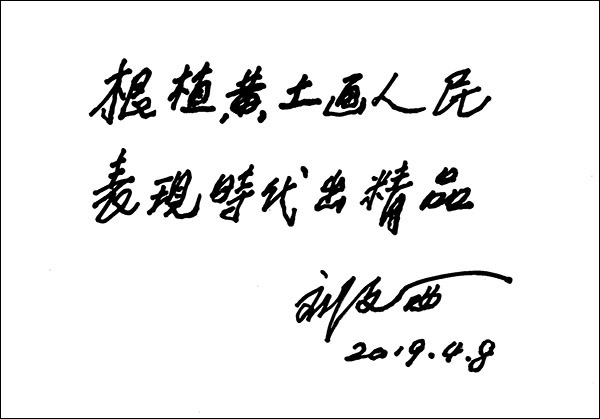 根植黄土画人民
表現時代出精品
刘文西
2019.4.8